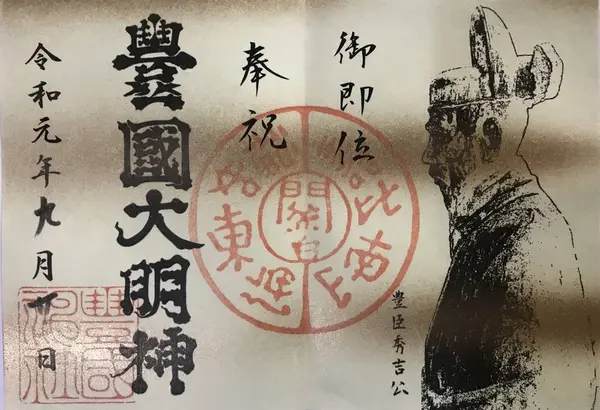 豊臣秀吉公
御即位
奉祝
關白
豐國大明神
令和元年九月
日